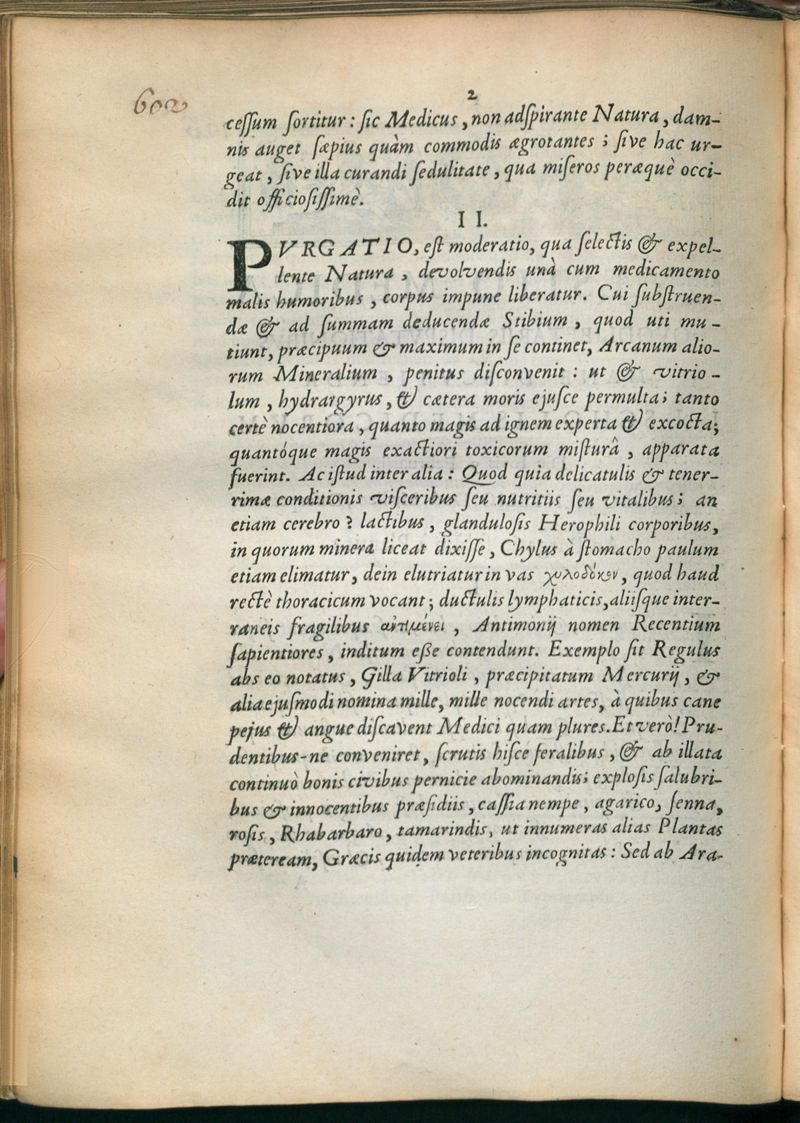 602
2
ceſſum ſortitur : ſic Medicus, non adſpirante Natura, dam-
nis auget ſæpius quàm commodis ægrotantes ; ſive hac ur-
geat, ſive illa curandi ſedulitate, qua miſeros peræquè occi-
dit officioſiſſimè.
II.
PVRGATIO, eſt moderatio, qua ſelectis & expel-
lente Natura, devolvendis unà cum medicamento
malis humoribus, corpus impune liberatur. Cui ſubſtruen-
dæ & ad ſummam deducendæ Stibium, quod uti mu-
tiunt, præcipuum & maximum in ſe continet, Arcanum alio-
rum Mineralium, penitus diſconvenit : ut & vitrio-
lum, hydrargyrus, & cætera moris ejuſce permulta; tanto
certè nocentiora, quanto magis ad ignem experta & excocta;
quantóque magis exactiori toxicorum miſturâ, apparata
fuerint. Ac iſtud inter alia : Quod quia delicatulis & tener-
rimæ conditionis viſceribus ſeu nutritiis ſeu vitalibus; an
etiam cerebro? lactibus, glanduloſis Herophili corporibus,
in quorum minera liceat dixiſſe, Chylus à ſtomacho paulum
etiam elimatur, dein elutriatur in vas χυλοδόκον, quod haud
rectè thoracicum vocant; ductulis lymphaticis, aliiſque inter-
raneis fragilibus ἀντιμένει, Antimonij nomen Recentium
ſapientiores, inditum eſſe contendunt. Exemplo ſit Regulus
abs eo notatus, Gilla Vitrioli, præcipitatum Mercurij, &
alia ejuſmodi nomina mille, mille nocendi artes, à quibus cane
pejus & angue diſcavent Medici quam plures. Et verò! Pru-
dentibus-ne conveniret, ſcrutis hiſce feralibus, & ab illata
continuò bonis civibus pernicie abominandis; exploſis ſalubri-
bus & innocentibus præſidiis, caſſia nempe, agarico, ſenna,
roſis, Rhabarbaro, tamarindis, ut innumeras alias Plantas
præteream, Græcis quidem veteribus incognitas : Sed ab Ara-